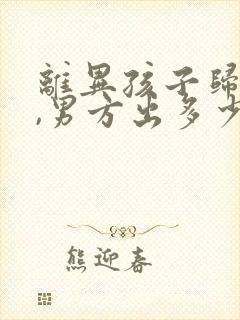 離異孩子歸
,男方出多少
熊迎春